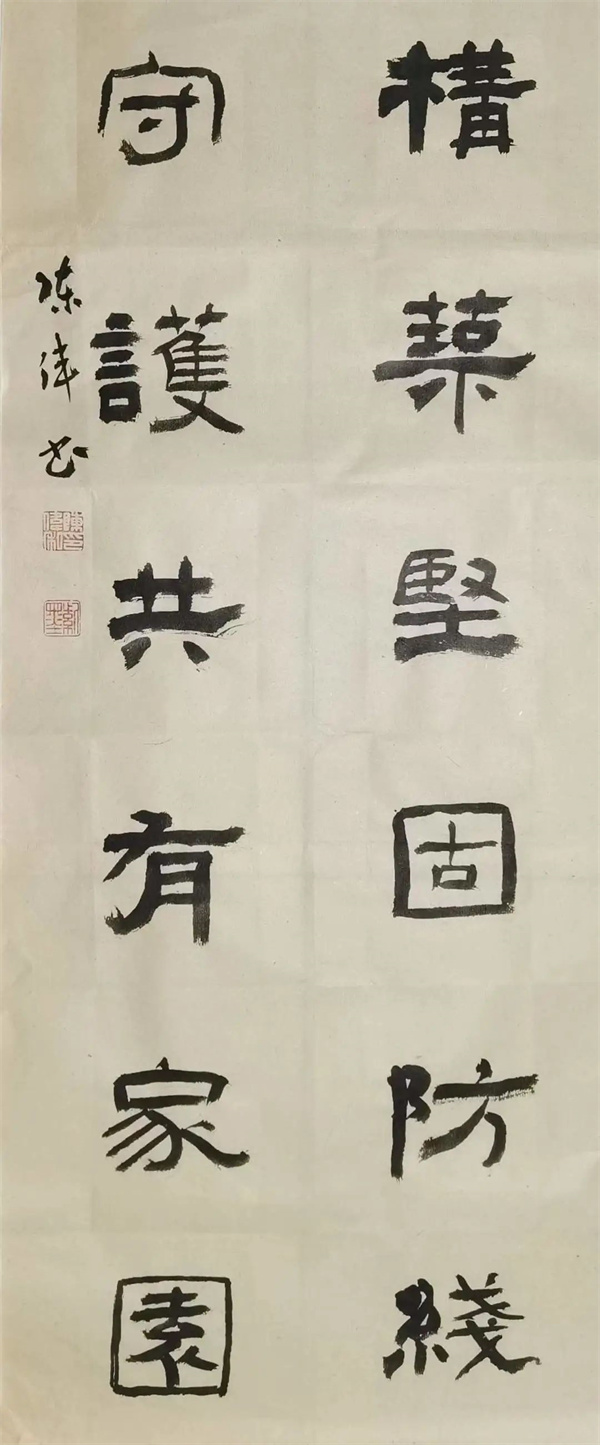 構築堅固防綫
守護共有家園
陳偉书